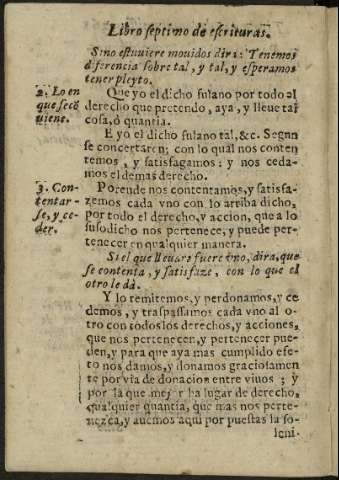 Libro septimo de escrituras.
Si no estuuiere mouidos dira: Tenemos
diferencia sobre tal, y tal, y esperamos
tener pleyto.
2. Lo en
que se cõ
uiene.
Que yo el dicho fulano por todo al
derecho que pretendo, aya, y lleue tal
cosa, ò quantia.
E yo el dicho fulano tal, &c. Segun
se concertaren; con lo qual nos conten
temos, y satisfagamos: y nos ceda-
mos el demas derecho.
3. Con-
tentar-
se, y ce-
der.
Porende nos contentamos, y satisfa-
zemos cada vno con lo arriba dicho,
por todo el derecho, y accion, que a lo
susodicho nos pertenece, y puede per-
tenecer en qualquier manera.
Si el que lleuare fuere vno, dira, que
se contenta, y satisfaze, con lo que el
otro le dà.
Y lo remitemos, y perdonamos, y ce
demos, y traspassamos cada vno al o-
tro con todos los derechos, y acciones,
que nos pertenecen, y pertenecer pue-
den, y para que aya mas cumplido efe-
to nos damos, y donamos graciosamen
te por via de donacion entre viuos; y
por la que mejor ha lugar de derecho,
qualquier quantia, que mas nos perte-
nezca, y auemos aqui por puestas la so-
leni-